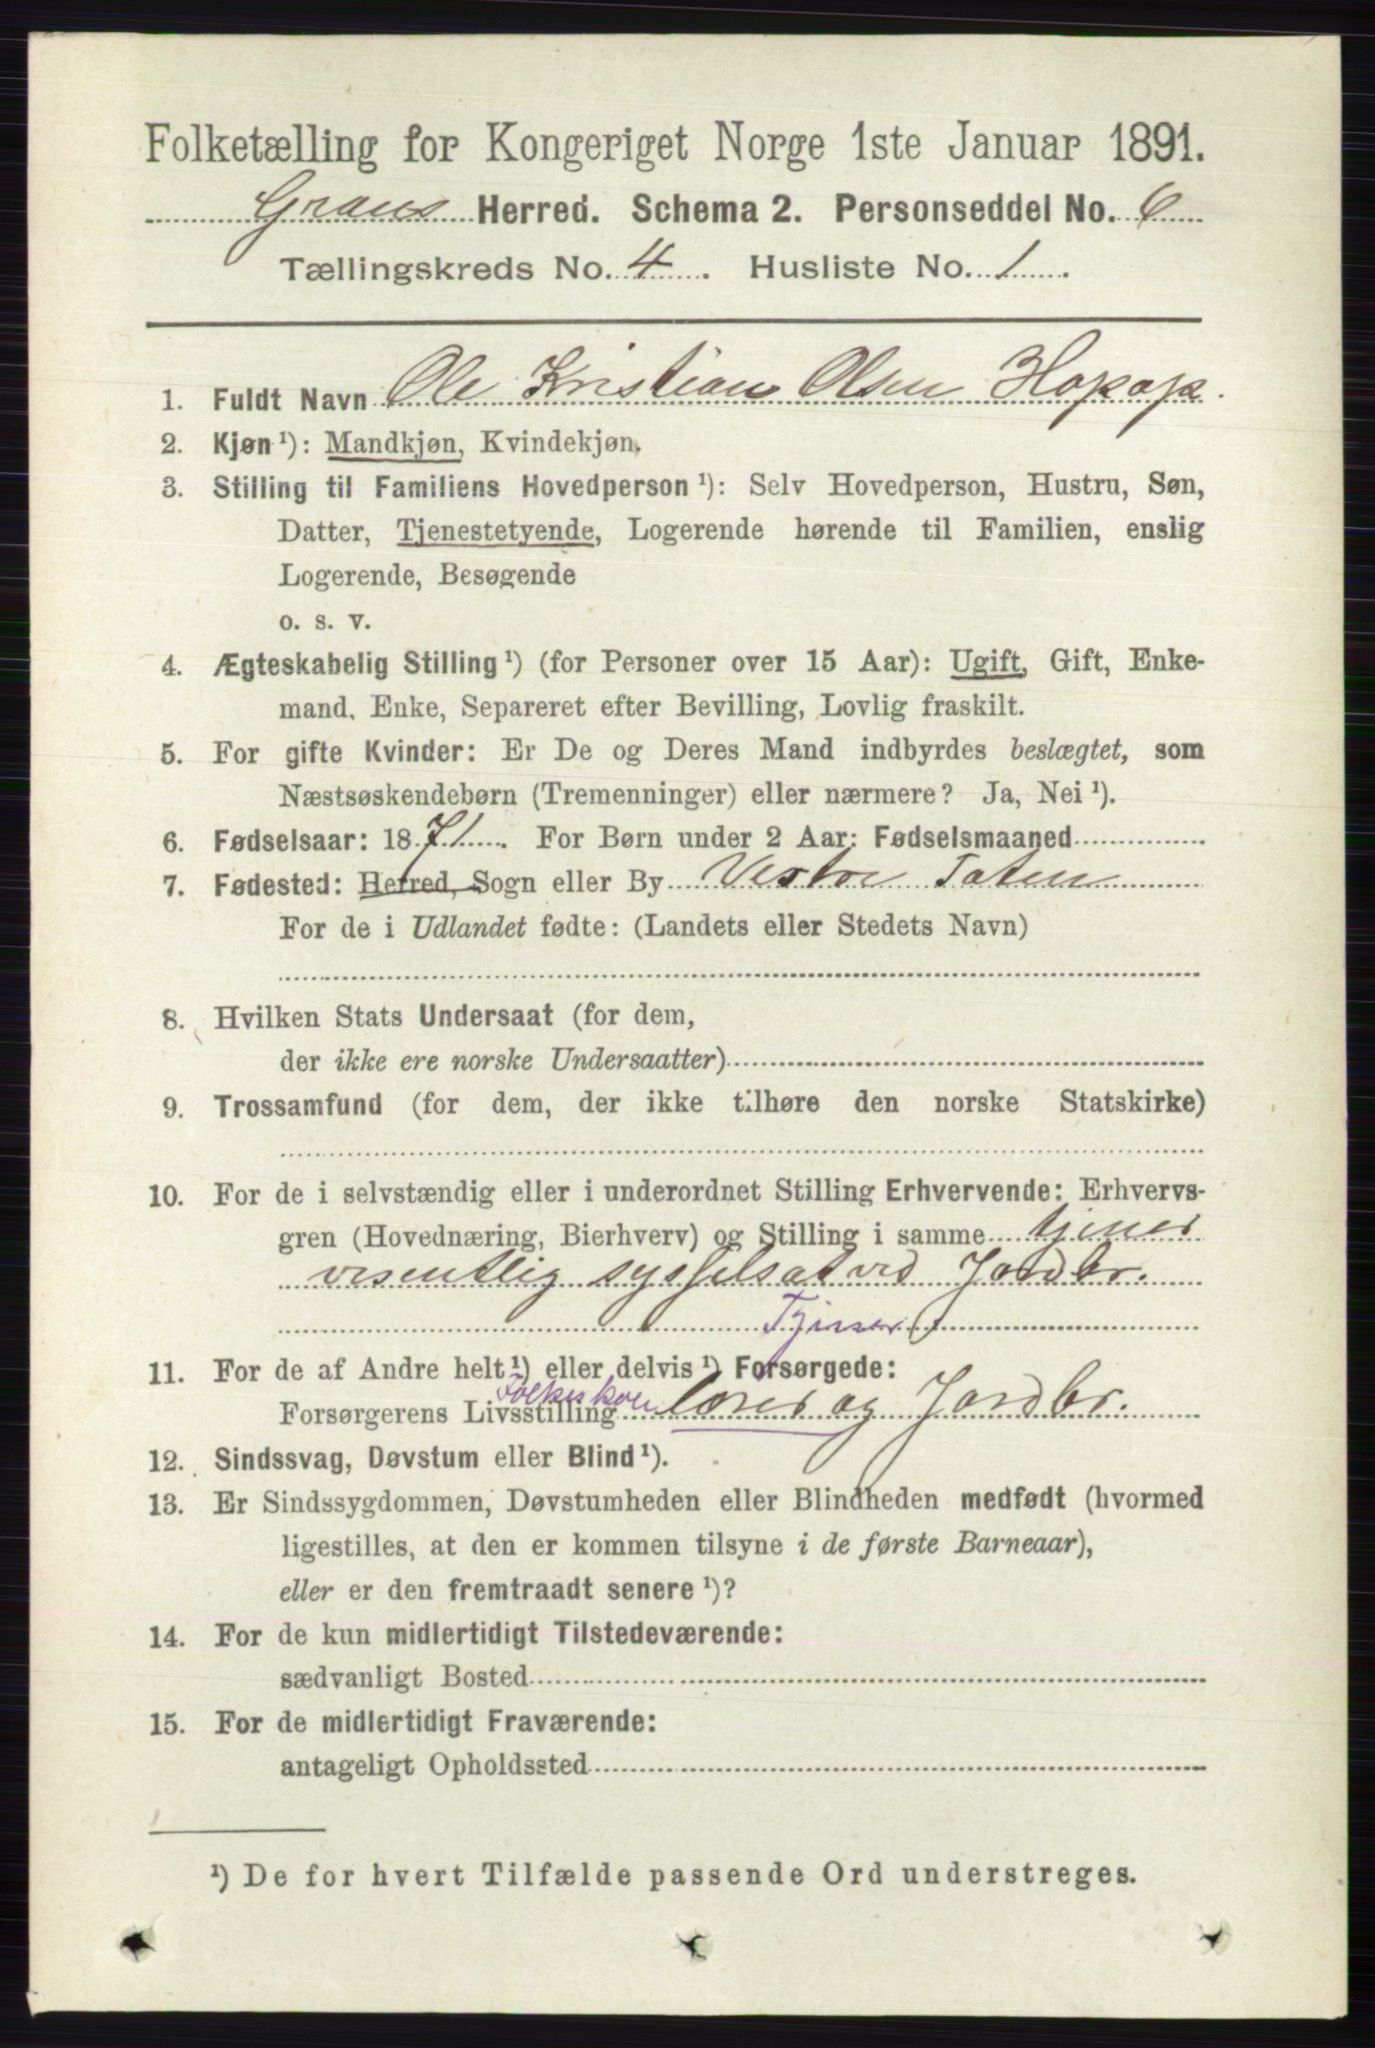 Folketælling for Kongeriget Norge 1ste Januar 1891.
Grans Herred. Schema 2. Personseddel No. 6
Tællingskreds No. 4. Husliste No. 1.
1. Fuldt Navn Ole Kristian Olsen
2. Kjøn ¹): Mandkjøn, Kvindekjøn.
3. Stilling til Familiens Hovedperson ¹): Selv Hovedperson, Hustru, Søn,
Datter, Tjenestetyende, Logerende hørende til Familien, enslig
Logerende, Besøgende
o. s. v.
4. Ægteskabelig Stilling ¹) (for Personer over 15 Aar): Ugift, Gift, Enke-
mand, Enke, Separeret efter Bevilling, Lovlig fraskilt.
5. For gifte Kvinder: Er De og Deres Mand indbyrdes beslægtet, som
Næstsøskendebørn (Tremenninger) eller nærmere? Ja, Nei ¹).
6. Fødselsaar: 1871. For Børn under 2 Aar: Fødselsmaaned
7. Fødested: Herred, Sogn eller By Vestre Toten
For de i Udlandet fødte: (Landets eller Stedets Navn)
8. Hvilken Stats Undersaat (for dem,
der ikke ere norske Undersaatter)
9. Trossamfund (for dem, der ikke tilhøre den norske Statskirke)
10. For de i selvstændig eller i underordnet Stilling Erhvervende: Erhvervs-
gren (Hovednæring, Bierhverv) og Stilling i samme tjener
vesentlig sysselsat ved Jordbr.
Tjener
11. For de af Andre helt ¹) eller delvis ¹) Forsørgede:
Folkeskole
Forsørgerens Livsstilling lærer og Jordbr.
12. Sindssvag, Døvstum eller Blind ¹).
13. Er Sindssygdommen, Døvstumheden eller Blindheden medfødt (hvormed
ligestilles, at den er kommen tilsyne i de første Barneaar),
eller er den fremtraadt senere ¹)?
14. For de kun midlertidigt Tilstedeværende:
sædvanligt Bosted
15. For de midlertidigt Fraværende:
antageligt Opholdssted
¹) De for hvert Tilfælde passende Ord understreges.